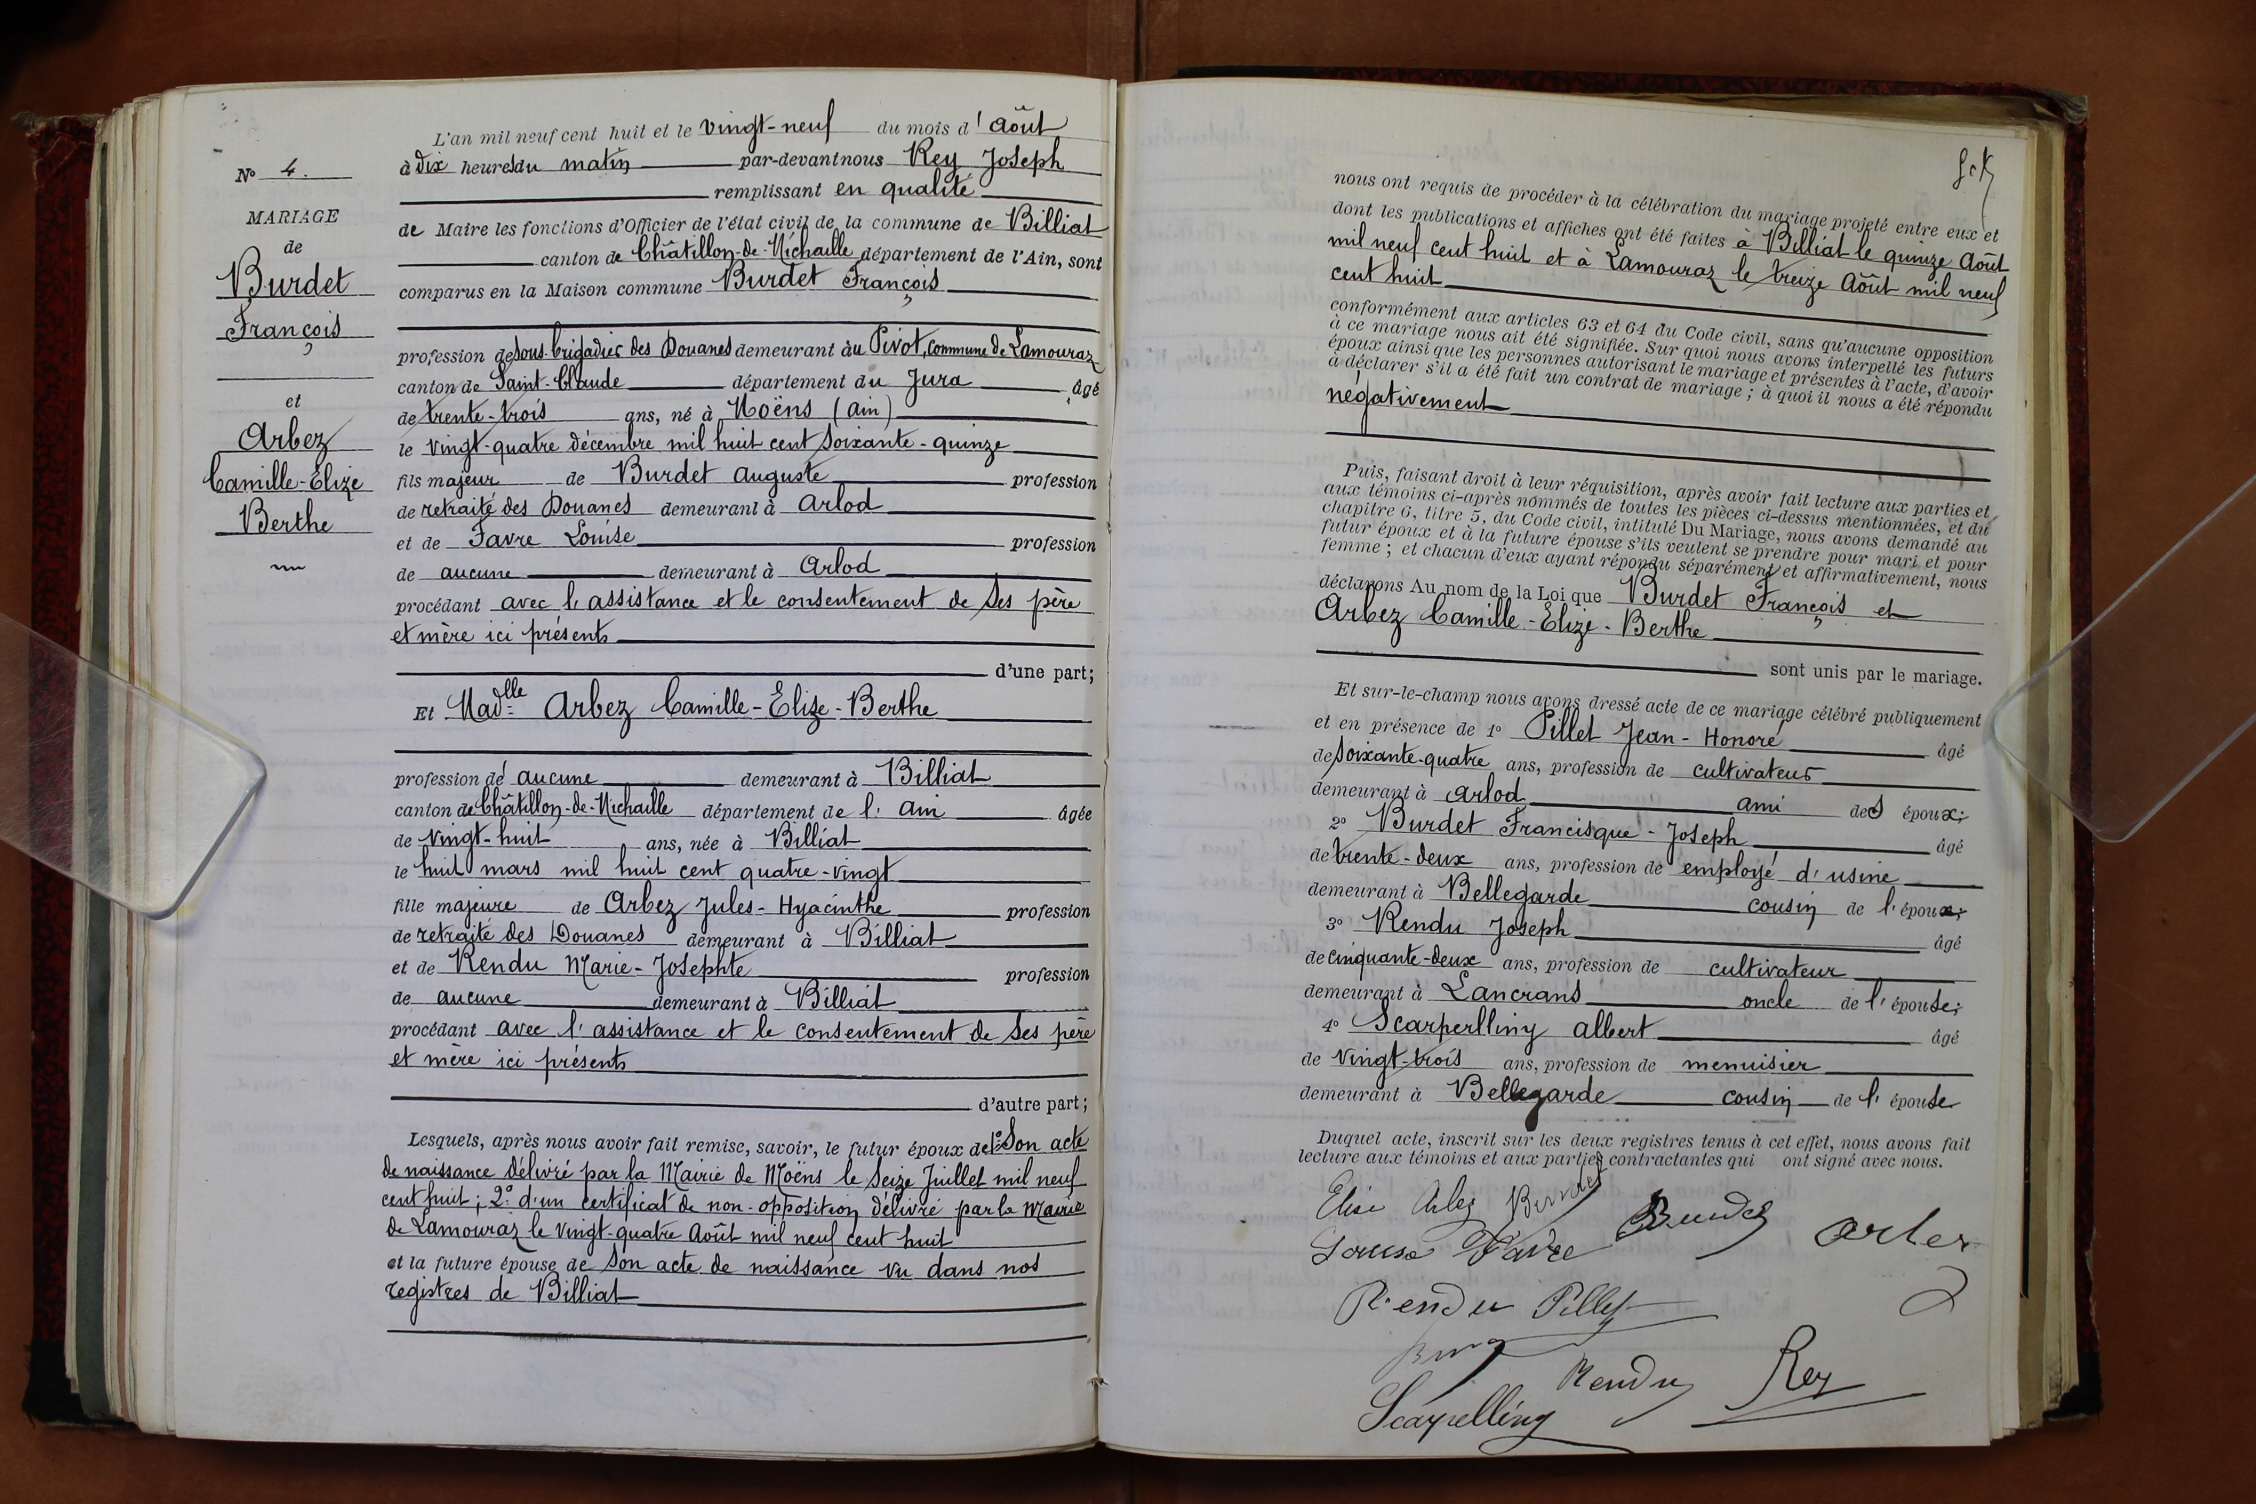 L'an mil neuf cent huit et le vingt-neuf du mois d'Août
à dix heures du matin par-devant nous Rey Joseph
remplissant en qualité
de Maire les fonctions d'Officier de l'état civil de la commune de Billiat
canton de Châtillon-de-Michaille département de l'Ain, sont
comparus en la Maison commune Burdet François
profession de sous-brigadier des Douanes demeurant au Pivot, commune de Lamouraz
canton de Saint-Claude département du Jura âgé
de trente-trois ans, né à Moëns (Ain)
le vingt-quatre décembre mil huit cent soixante-quinze
fils majeur de Burdet Auguste profession
de retraité des Douanes demeurant à Arlod
et de Favre Louise profession
de aucune demeurant à Arlod
procédant avec l'assistance et le consentement de ses père
et mère ici présents
d'une part;
Et Madlle Arbez Camille-Elize-Berthe
profession de aucune demeurant à Billiat
canton de Châtillon-de-Michaille département de l'Ain âgée
de vingt-huit ans, née à Billiat
le huit mars mil huit cent quatre-vingt
fille majeure de Arbez Jules-Hyacinthe profession
de retraité des Douanes demeurant à Billiat
et de Rendu Marie-Josephte profession
de aucune demeurant à Billiat
procédant avec l'assistance et le consentement de ses père
et mère ici présents
d'autre part;
Lesquels, après nous avoir fait remise, savoir, le futur époux de 1° Son acte
de naissance délivré par la Mairie de Moëns le seize Juillet mil neuf
cent huit; 2° d'un certificat de non-opposition délivré par la Mairie
de Lamouraz le vingt-quatre Août mil neuf cent huit
et la future épouse de son acte de naissance vu dans nos
registres de Billiat
N° 4.
MARIAGE
de
Burdet
François
et
Arbez
Camille-Élize
Berthe
nous ont requis de procéder à la célébration du mariage projeté entre eux et
dont les publications et affiches ont été faites à Billiat le quinze Août
mil neuf cent huit et à Lamouraz le treize Août mil neuf
cent huit
conformément aux articles 63 et 64 du Code civil, sans qu'aucune opposition
à ce mariage nous ait été signifiée. Sur quoi nous avons interpellé les futurs
époux ainsi que les personnes autorisant le mariage et présentes à l'acte, d'avoir
à déclarer s'il a été fait un contrat de mariage; à quoi il nous a été répondu
négativement
Puis, faisant droit à leur réquisition, après avoir fait lecture aux parties et
aux témoins ci-après nommés de toutes les pièces ci-dessus mentionnées, et du
chapitre 6, titre 5, du Code civil, intitulé Du Mariage, nous avons demandé au
futur époux et à la future épouse s'ils veulent se prendre pour mari et pour
femme; et chacun d'eux ayant répondu séparément et affirmativement, nous
déclarons Au nom de la Loi que Burdet François et
Arbez Camille-Elize-Berthe
sont unis par le mariage.
Et sur-le-champ nous avons dressé acte de ce mariage célébré publiquement
et en présence de 1° Pillet Jean-Honoré âgé
de soixante-quatre ans, profession de cultivateur
demeurant à Arlod ami des époux;
2° Burdet Francisque-Joseph âgé
de trente-deux ans, profession de employé d'usine
demeurant à Bellegarde cousin de l'époux;
3° Rendu Joseph âgé
de cinquante-deux ans, profession de cultivateur
demeurant à Lancrans oncle de l'épouse;
4° Scarperlliny Albert âgé
de vingt-trois ans, profession de menuisier
demeurant à Bellegarde cousin de l'épouse
Duquel acte, inscrit sur les deux registres tenus à cet effet, nous avons fait
lecture aux témoins et aux parties contractantes qui ont signé avec nous.
Elise Arbez Burdet Burdet Arbez
Louise Favre
Rendu Pillet
Rendu Rey
Scarpelliny